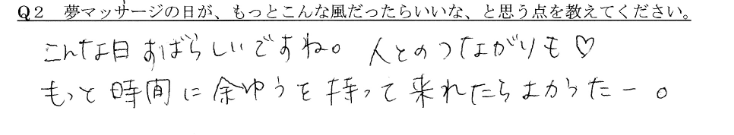 Q2 夢マッサージの日が、もっとこんな風だったらいいな、と思う点を教えてください。
こんな日すばらしいですね。人とのつながりも♡
もっと時間に余ゆうを持って来れたらよかったー。